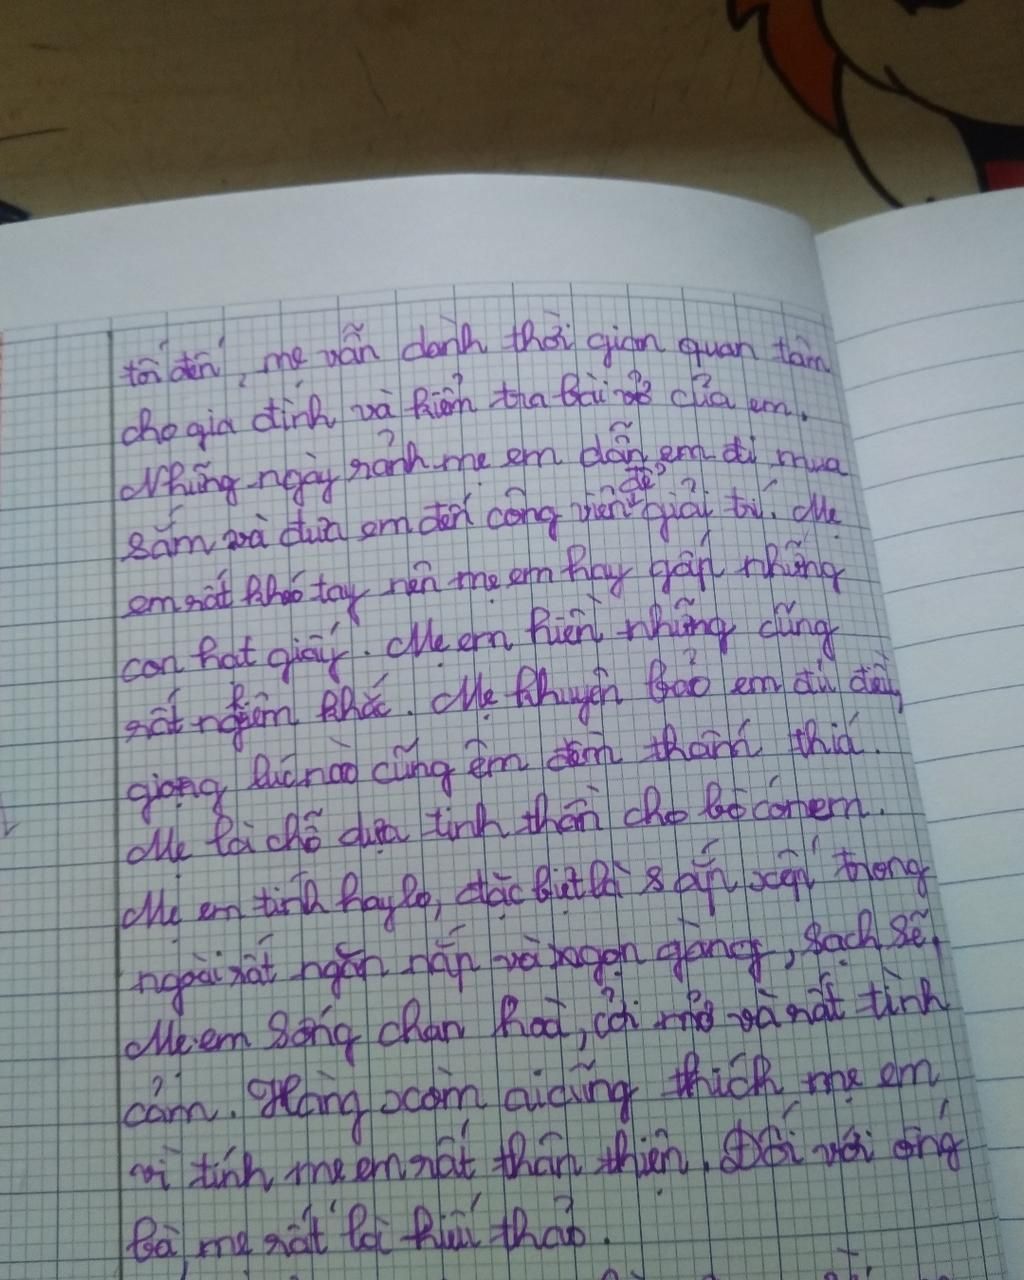 tối đến, mẹ vẫn dành thời gian quan tâm
cho gia đình và kiểm tra bài vở của em.
Những ngày rảnh mẹ em dẫn em đi mua
sắm và đưa em đến công viên để giải trí. Mẹ
em rất khéo tay nên mẹ em hay gấp những
con hạt giấy. Mẹ em hiền những cũng
rất nghiêm khắc. Mẹ khuyên bảo em đủ điều,
giọng lúc nào cũng êm đềm thành thiả.
Mẹ là chỗ dựa tinh thần cho bố con em.
Mẹ em tính hay lo, đặc biệt là sắp xếp trong
ngoài rất ngăn nắp và ngọn gàng, sạch sẽ,
Mẹ em sống chan hoà, cởi mở và rất tình
cảm. Hàng xóm ai cũng thích mẹ em
vì tính mẹ em rất thân thiện. Đối với ông
bà, mẹ rất là hiếu thảo.